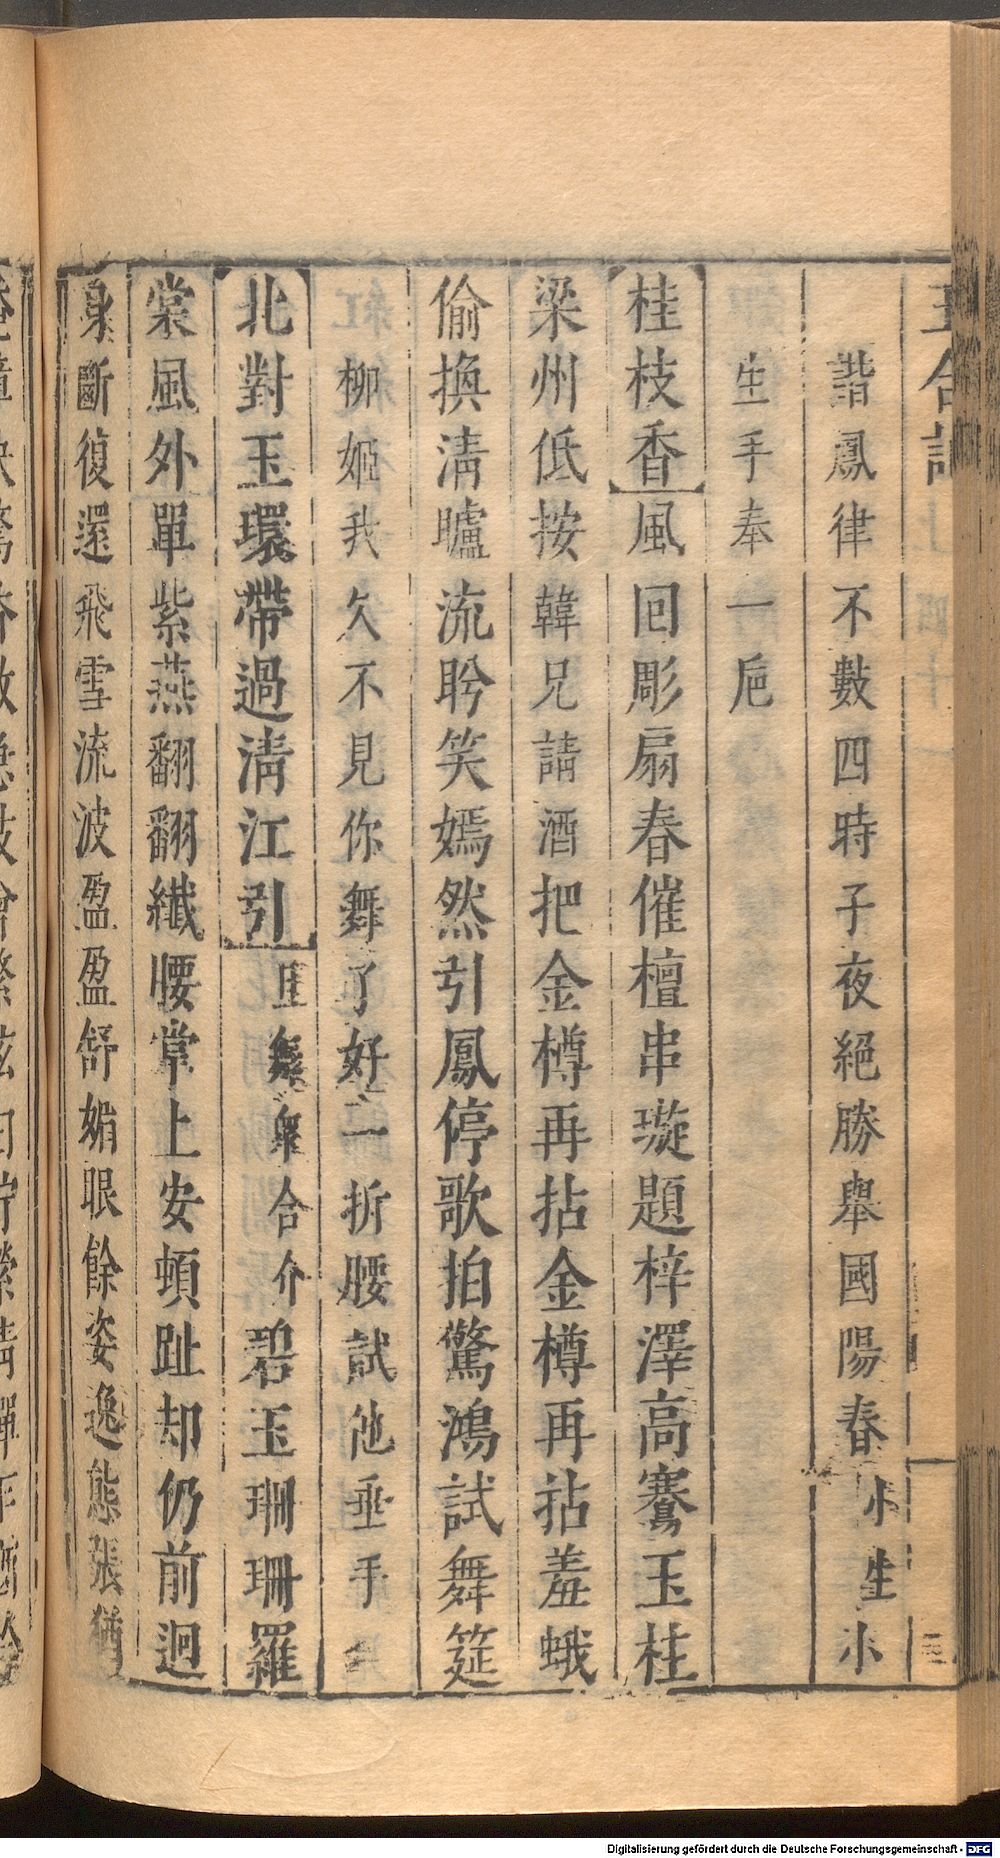 諧鳳律不數四時子夜絕勝舉國陽春小生小
生手奉一巵
桂枝香風回彫扇春催檀串璇題梓澤高騫玉桂
梁州低按韓兄請酒把金樽再拈金樽再拈羞蛾
偷換清矑流眄笑嫣然引鳳停歌拍驚鴻試舞筵
柳姬我久不見你舞了好二折腰試他垂手
北對玉環帶過清江引舞合介碧玉珊珊羅
棠風外單紫燕翻翻纖腰掌上安頓趾却仍前迴
斷復還飛雪流波盈盈舒媚眼餘姿逸態張猶
Digitalisierung gefördert durch die Deutsche Forschungsgemeinschaft - DFG